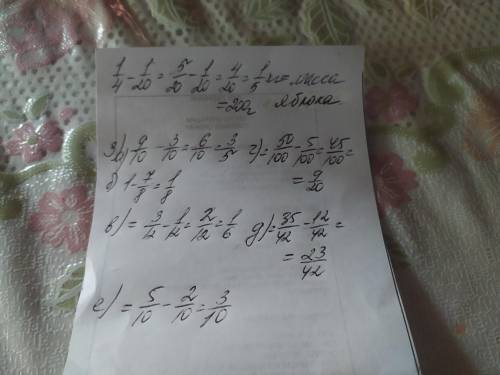 1/4 - 1/20 = 5/20 - 1/20 = 4/20 = 1/5 кг = масса
= 200г яблока
3а) 9/10 - 3/10 = 6/10 = 3/5 г) = 50/100 - 5/100 = 45/100 =
= 9/20
б 1 - 7/8 = 1/8
в) = 3/12 - 1/12 = 2/12 = 1/6 д) = 35/42 - 12/42 =
= 23/42
е) = 5/10 - 2/10 = 3/10